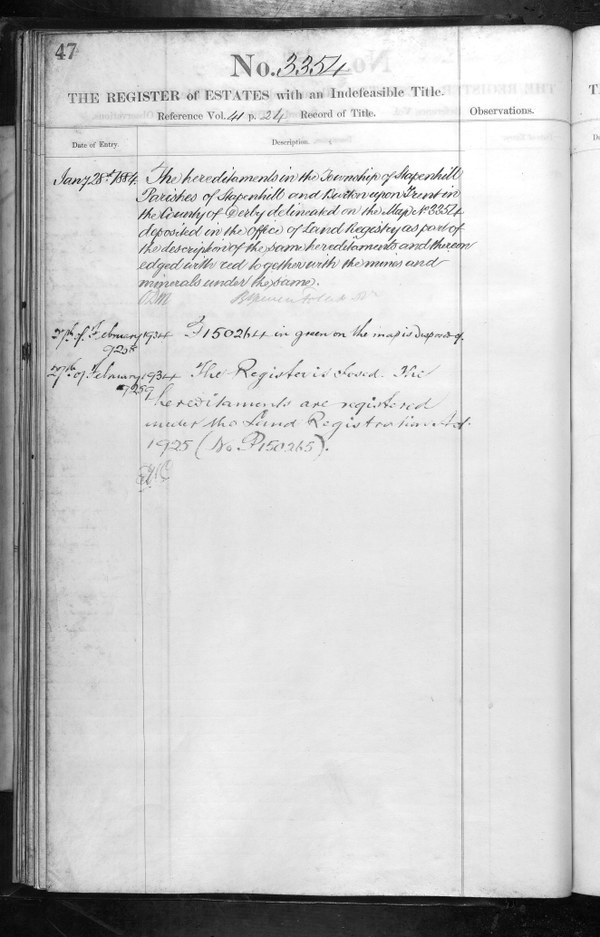 47
No. 3354
THE REGISTER of ESTATES with an Indefeasible Title.
Reference Vol. 41 p. 24 Record of Title.
Observations.
Date of Entry.
Description.
Jany 28th 1884. The hereditaments in the Township of Stapenhill
Parishes of Stapenhill and Burton upon Trent in
the County of Derby delineated on the Map No 3354
deposited in the Office of Land Registry as part of
the description of the same hereditaments and thereon
edged with red together with the mines and
minerals under the same.
27th of February 1934 P150264 in green on the map is disposed of.
27th of February 1934 The Register is closed. The
hereditaments are registered
under the Land Registration Act
1925 (No. P150265).